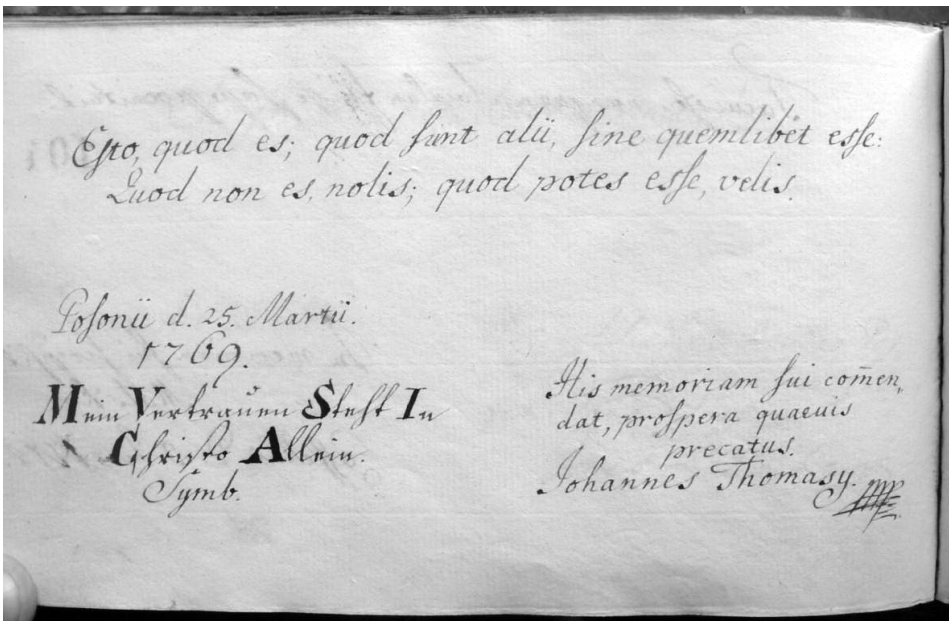 Esto, quod es; quod sunt alii, sine quemlibet esse:
Quod non es, nolis; quod potes esse, velis.
Posonii d. 25. Martii.
1769.
Mein Vertrauen Steht In
Christo Allein.
Symb.
His memoriam sui com̄en,
dat, prospera quaeuis
precatus.
Johannes Thomasy.